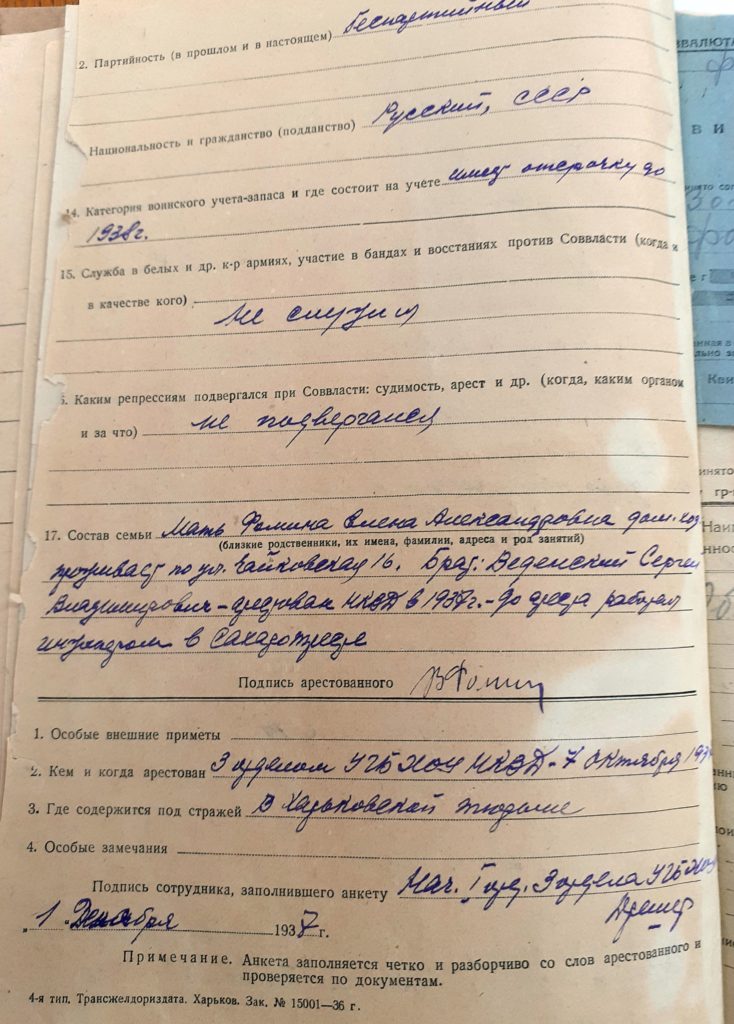 2. Партийность (в прошлом и в настоящем) беспартийный
Национальность и гражданство (подданство) Русский, СССР
14. Категория воинского учета-запаса и где состоит на учете имеет отсрочку до
1938г.
15. Служба в белых и др. к-р армиях, участие в бандах и восстаниях против Соввласти (когда и
в качестве кого)
не служил
6. Каким репрессиям подвергался при Соввласти: судимость, арест и др. (когда, каким органом
и за что) не подвергался
17. Состав семьи Мать Фомина Елена Александровна дом-хоз
(близкие родственники, их имена, фамилии, адреса и род занятий)
проживает по ул. Чайковская 16. Брат: Веденский Сергей
Владимирович - арестован НКВД в 1937г. - до ареста работал
инженером в Сахаротресте
Подпись арестованного ВФомин
1. Особые внешние приметы
2. Кем и когда арестован 3 отделом УГБ ХОУ НКВД - 7 октября 193
3. Где содержится под стражей В Харьковской тюрьме
4. Особые замечания
Подпись сотрудника, заполнившего анкету Нач. I отд. 3 отдела УГБ ХОУ
„1" Декабря 1937 г.
Примечание. Анкета заполняется четко и разборчиво со слов арестованного и
проверяется по документам.
4-я тип. Трансжелдориздата. Харьков. Зак. № 15001—36 г.